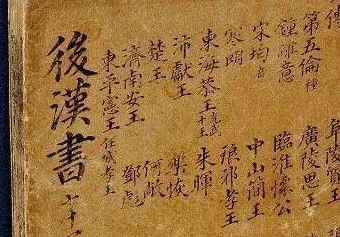 第五倫種
鍾離意
宋均意
寒朗
東海恭王光武十王
沛獻王
楚王
濟南安王
東平憲王任城孝王
阜陵質王
廣陵思王
臨淮懷公
中山簡王
琅邪孝王
朱暉
樂恢
何敞
鄧彪
後漢書